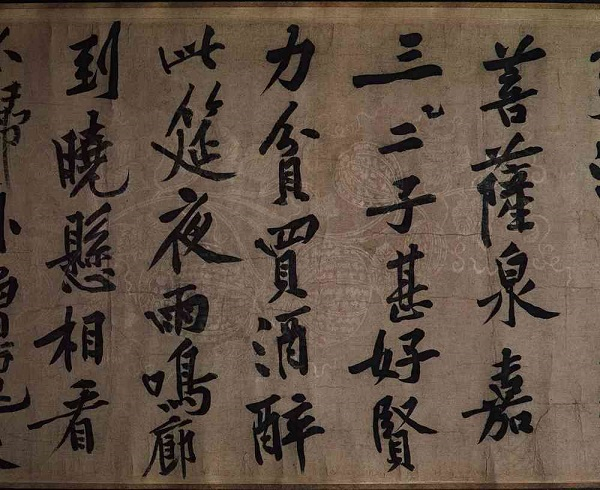 菩薩泉嘉
三二子甚好賢
力貧買酒醉
此筵夜雨鳴廊
到曉懸相看
不歸臥僧氈